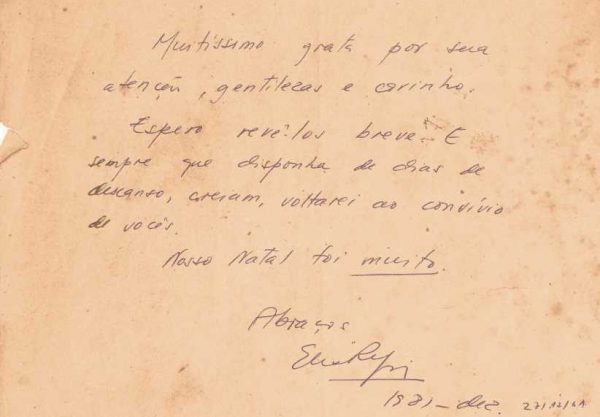 Muitíssimo grata por sua
atenção, gentilezas e carinho.
Espero revê-los breve. E
sempre que disponha de dias de
descanso, creiam, voltarei ao convívio
de vocês.
Nosso Natal foi muito.
Abraços
1981 - dez.